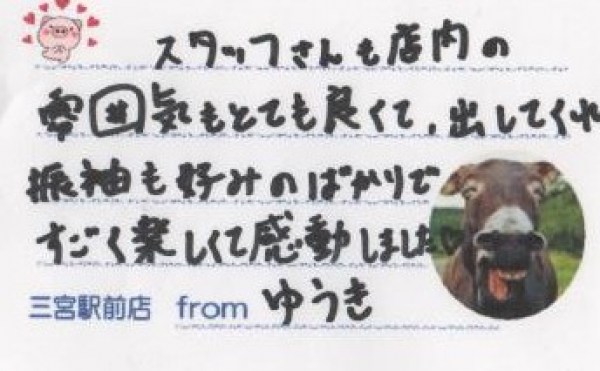 スタッフさんも店内の
雰囲気もとても良くて、出してくれ
振袖も好みのばかりで
すごく楽しくて感動しました
三宮駅前店 from ゆうき